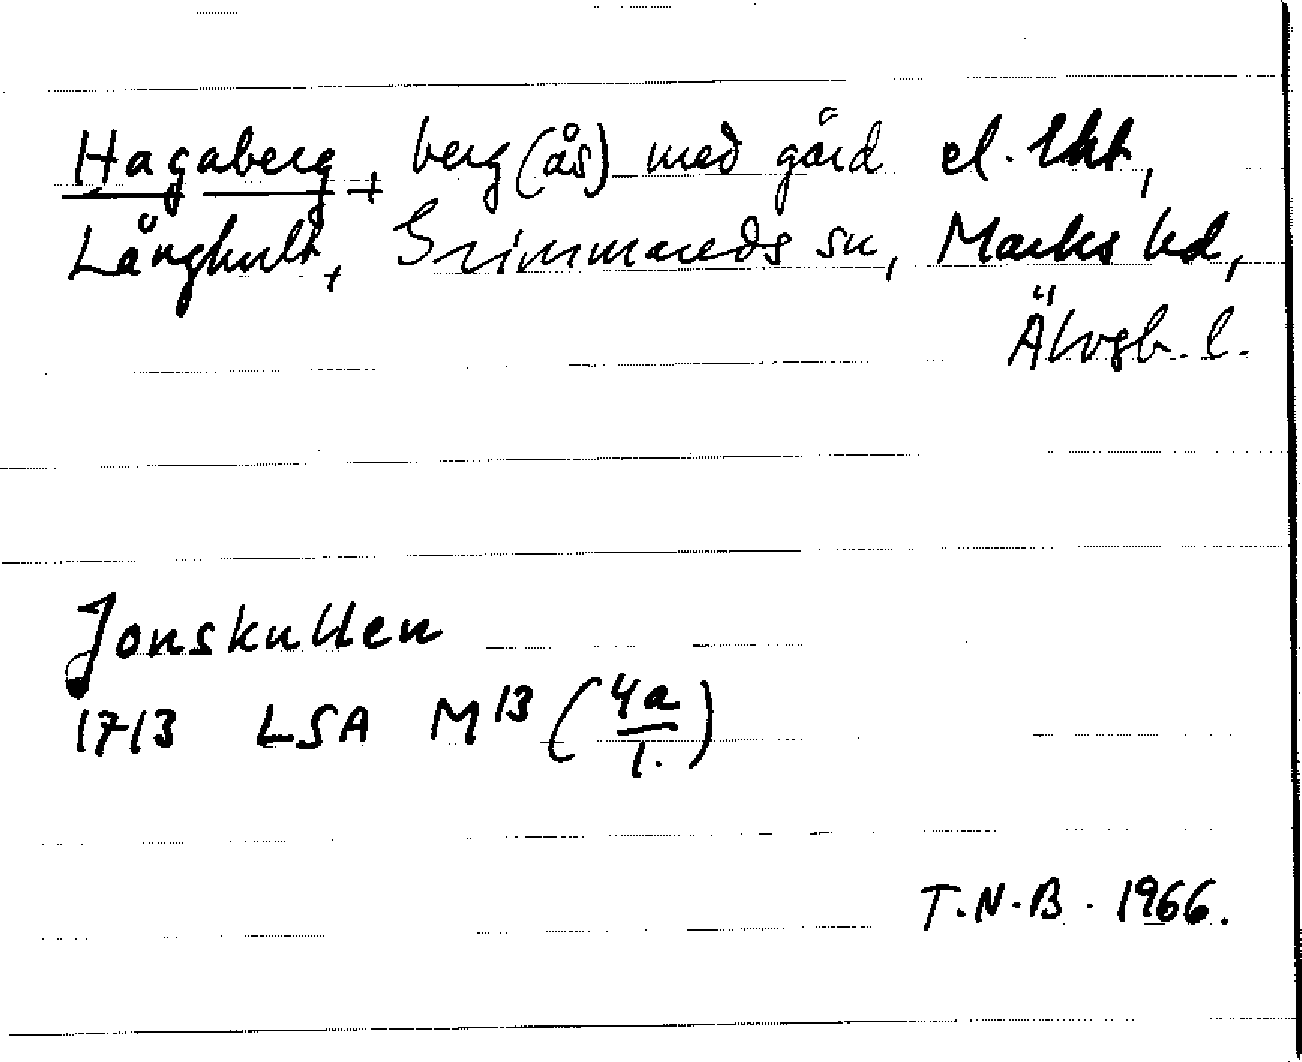 Hagaberg, berg (ås) med gård el. lht,
Långhult, Grimmareds sn, Marks hd,
Älvsb. l.
Jonskullen
1713 LSA M13 (4a/1.)
T.N.B. 1966.